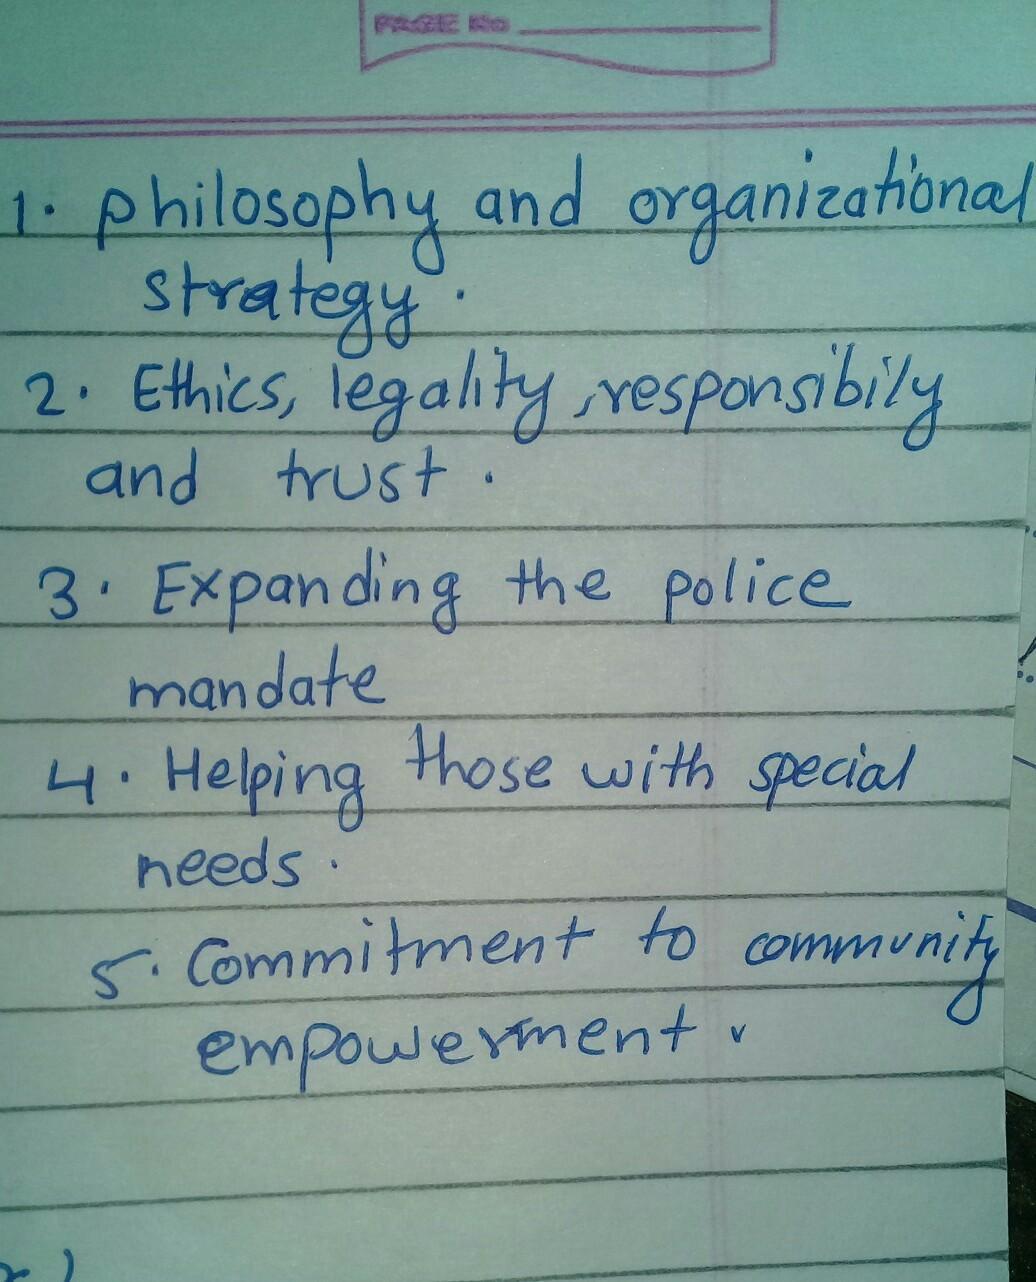 PAGE No
1. philosophy and organizational
strategy.
2. Ethics, legality, responsibily
and trust.
3. Expanding the police
mandate
4. Helping those with special
needs.
5. Commitment to community
empowerment.